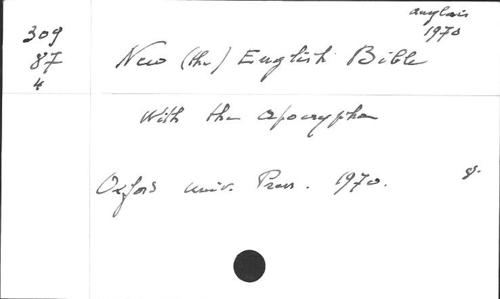 anglais
1970
309
87
4
New (the) English Bible
with the apocrypha
Oxford univ. Press. 1970.
8.